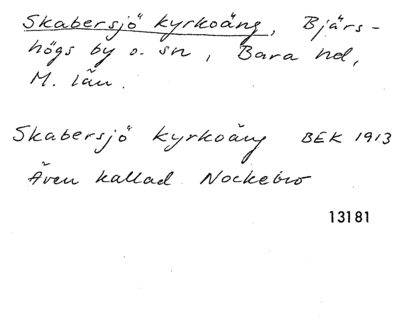 Skabersjö kyrkoäng, Bjärs-
högs by o. sn, Bara hd,
M. län.
Skabersjö kyrkoäng BEK 1913
Även kallad Nockebro
13181